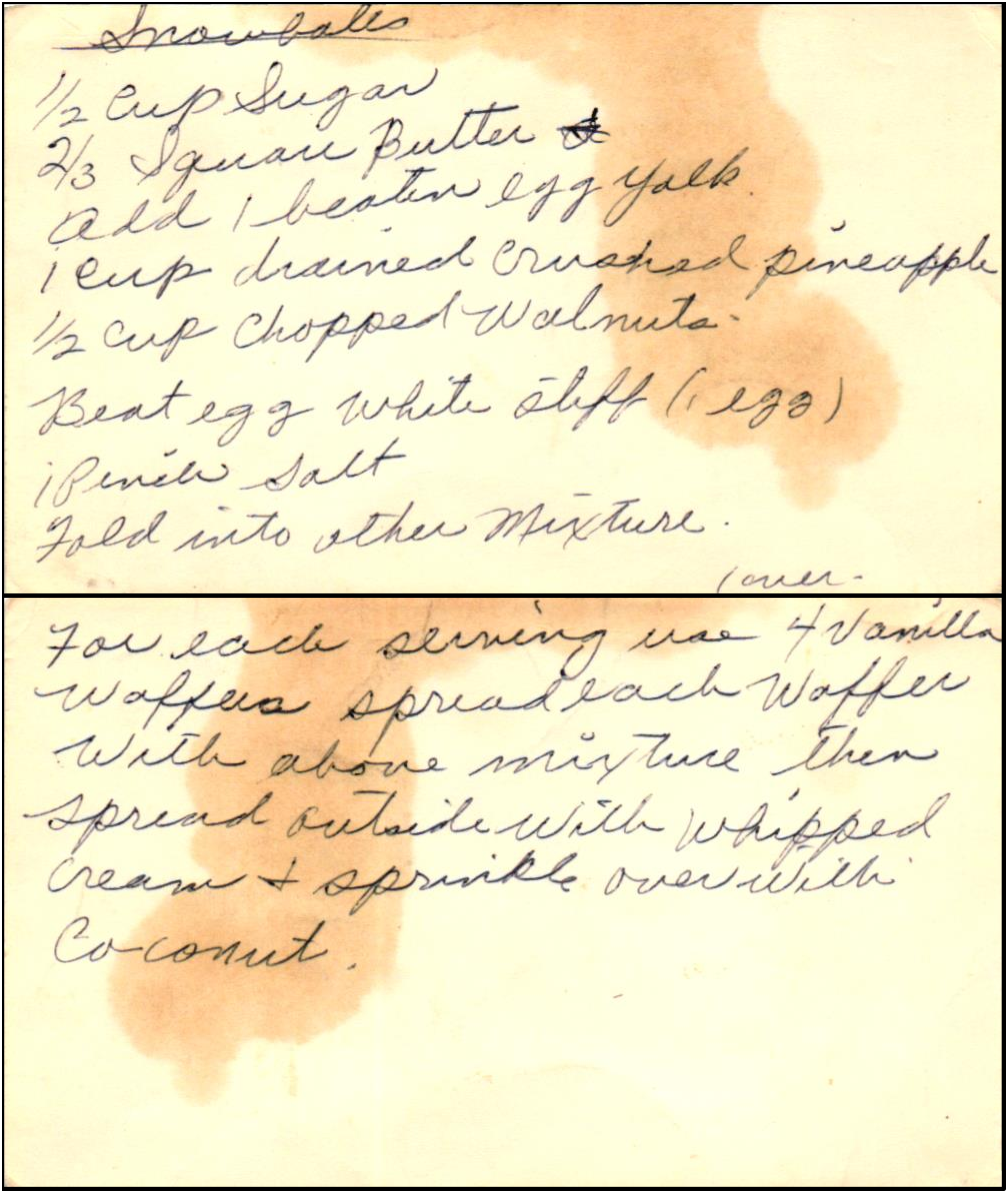 Snowballs
1/2 Cup Sugar
2/3 Square Butter
Add 1 beaten egg yolk.
1 Cup drained Crushed pineapple
1/2 Cup Chopped Walnuts.
Beat egg white stiff (1 egg)
1 Pinch Salt
Fold into other Mixture.
(over.
For each serving use 4 Vanilla
Waffers spread each Waffer
With above mixture then
spread outside With Whipped
Cream + sprinkle over With
Co-conut.